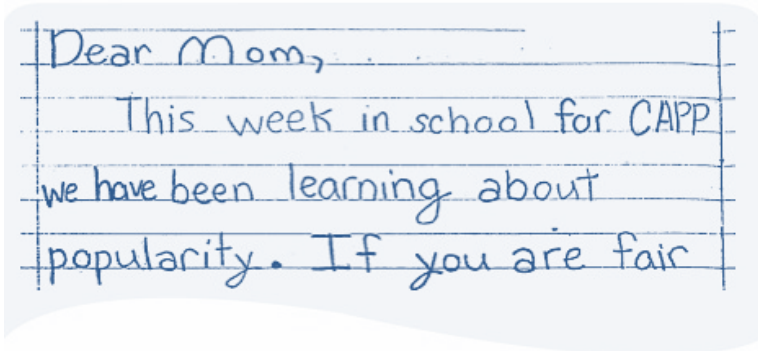 Dear Mom,
This week in school for CAPP
we have been learning about
popularity. If you are fair